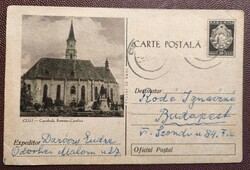 CARTE POŞTALĂ
CLUJ – Catedrala Romano-Catolica
Destinatar
Kodó Ignácné
Budapest
V. Szondi u 84.
Expeditor Darvas Endre
Odorhei Malom u 27
Oficiul Poştal